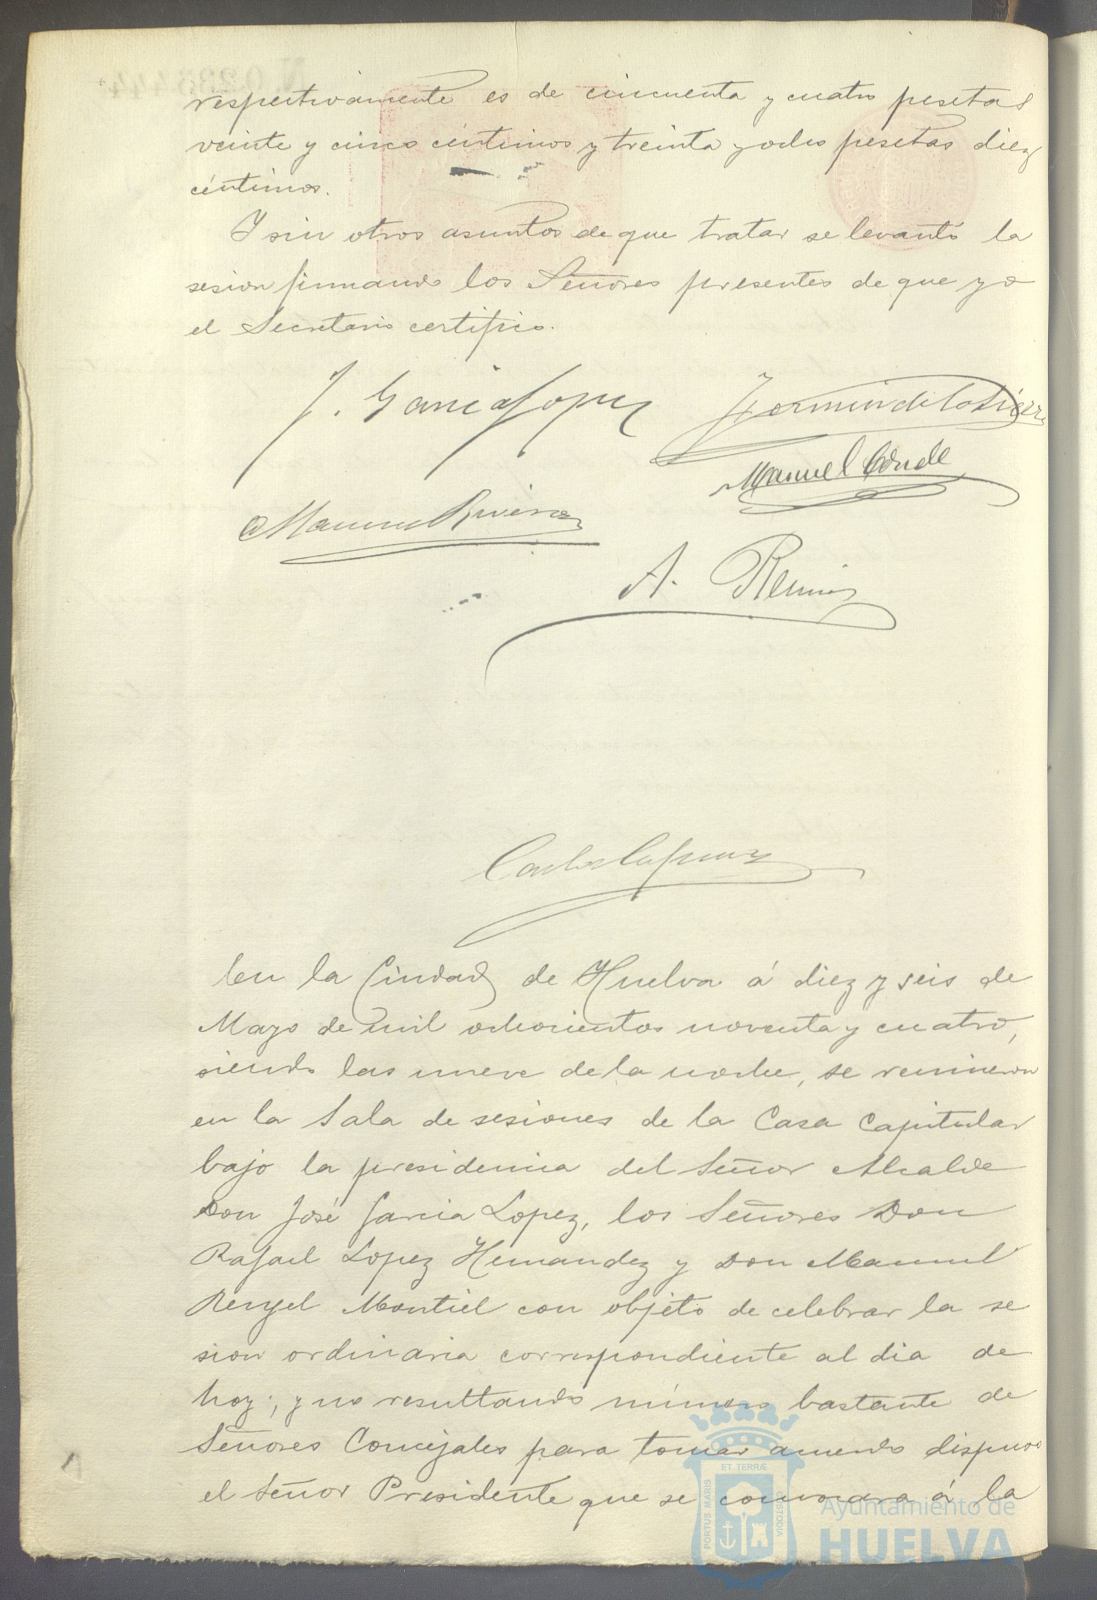 respectivamente es de cincuenta y cuatro pesetas
veinte y cinco céntimos y treinta y ocho pesetas diez
céntimos.
Y sin otros asuntos de que tratar se levantó la
sesion firmando los Señores presentes de que yo
el Secretario certifico.
J. Garcia Lopez
Fermin de la Sierra
Manuel Conde
Manuel Rivera
A.
En la Ciudad de Huelva á diez y seis de
Mayo de mil ochocientos noventa y cuatro,
siendo las nueve de la noche, se reunieron
en la Sala de sesiones de la Casa Capitular
bajo la presidencia del Señor Alcalde
Don José Garcia Lopez, los Señores Don
Rafael Lopez Hernandez y Don Manuel
Rengel Montiel con objeto de celebrar la se
sion ordinaria correspondiente al dia de
hoy; y no resultando número bastante de
Señores Concejales para tomar acuerdo dispuso
el Señor Presidente que se convocara á la
PORTUS MARIS
ET TERRÆ
CUSTODIA
Ayuntamiento de
HUELVA